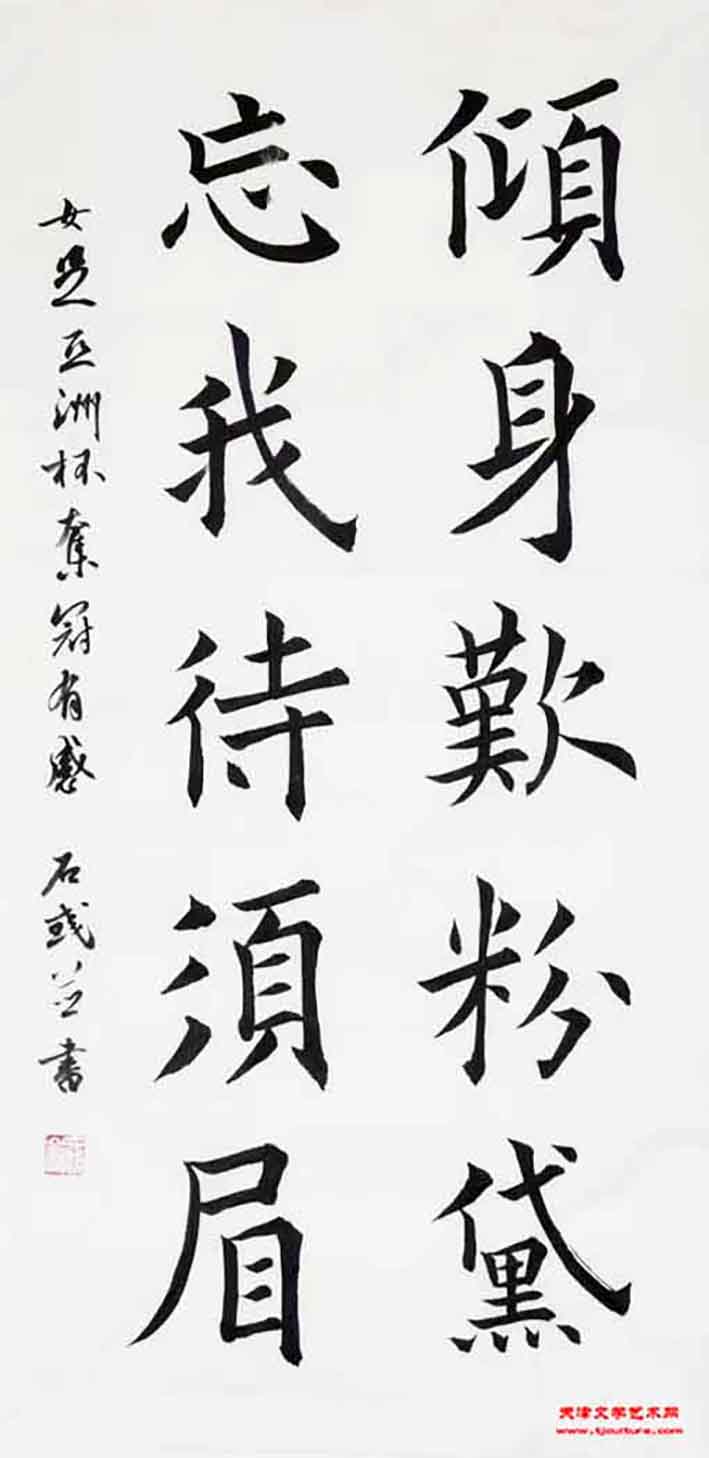 傾身歎粉黛
忘我待須眉
女足亞洲杯奪冠有感 石彧并書
天津文学艺术网
www.tjculture.com